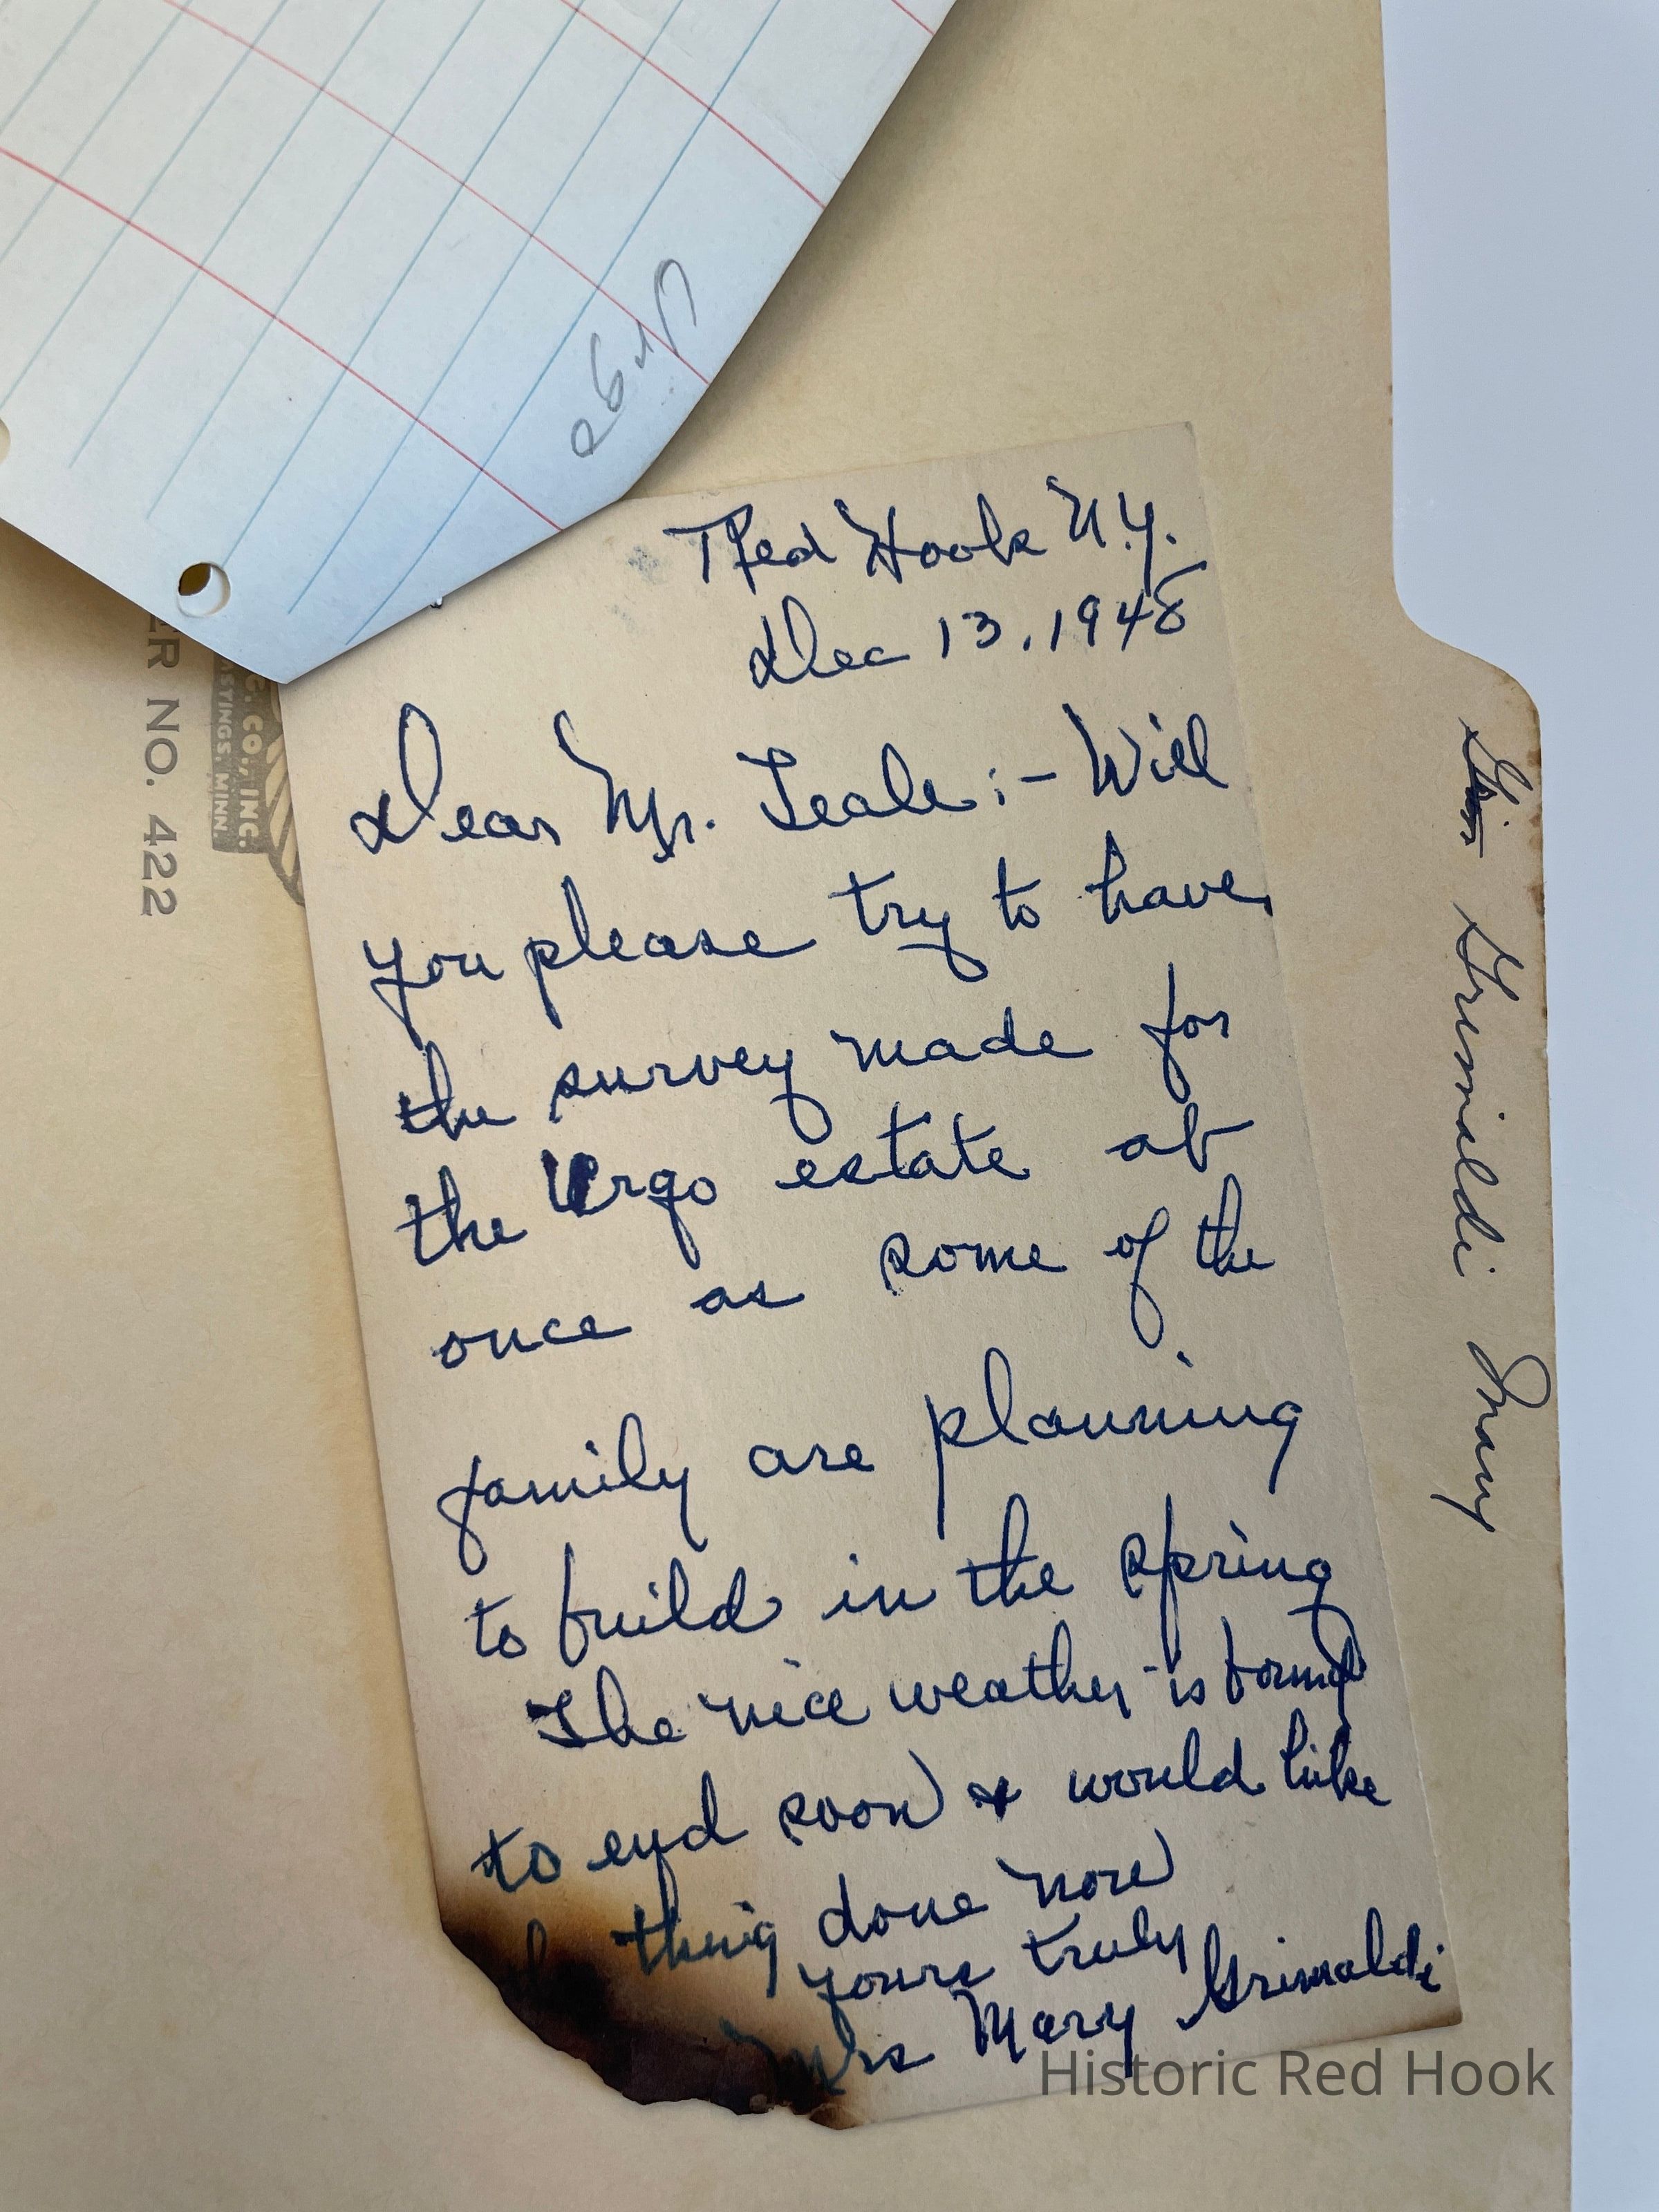 Urgo
Red Hook N.Y.
Dec 13, 1948
Dear Mr. Teale:- Will
you please try to have
the survey made for
the Urgo estate at
once as some of the
family are planning
to build in the spring
The nice weather is bound
to end soon & would like
thing done now
Yours truly
Mrs Mary Grimaldi
Grimaldi Mary
ER NO. 422
C. CO., INC.
ASTINGS, MINN.
Historic Red Hook